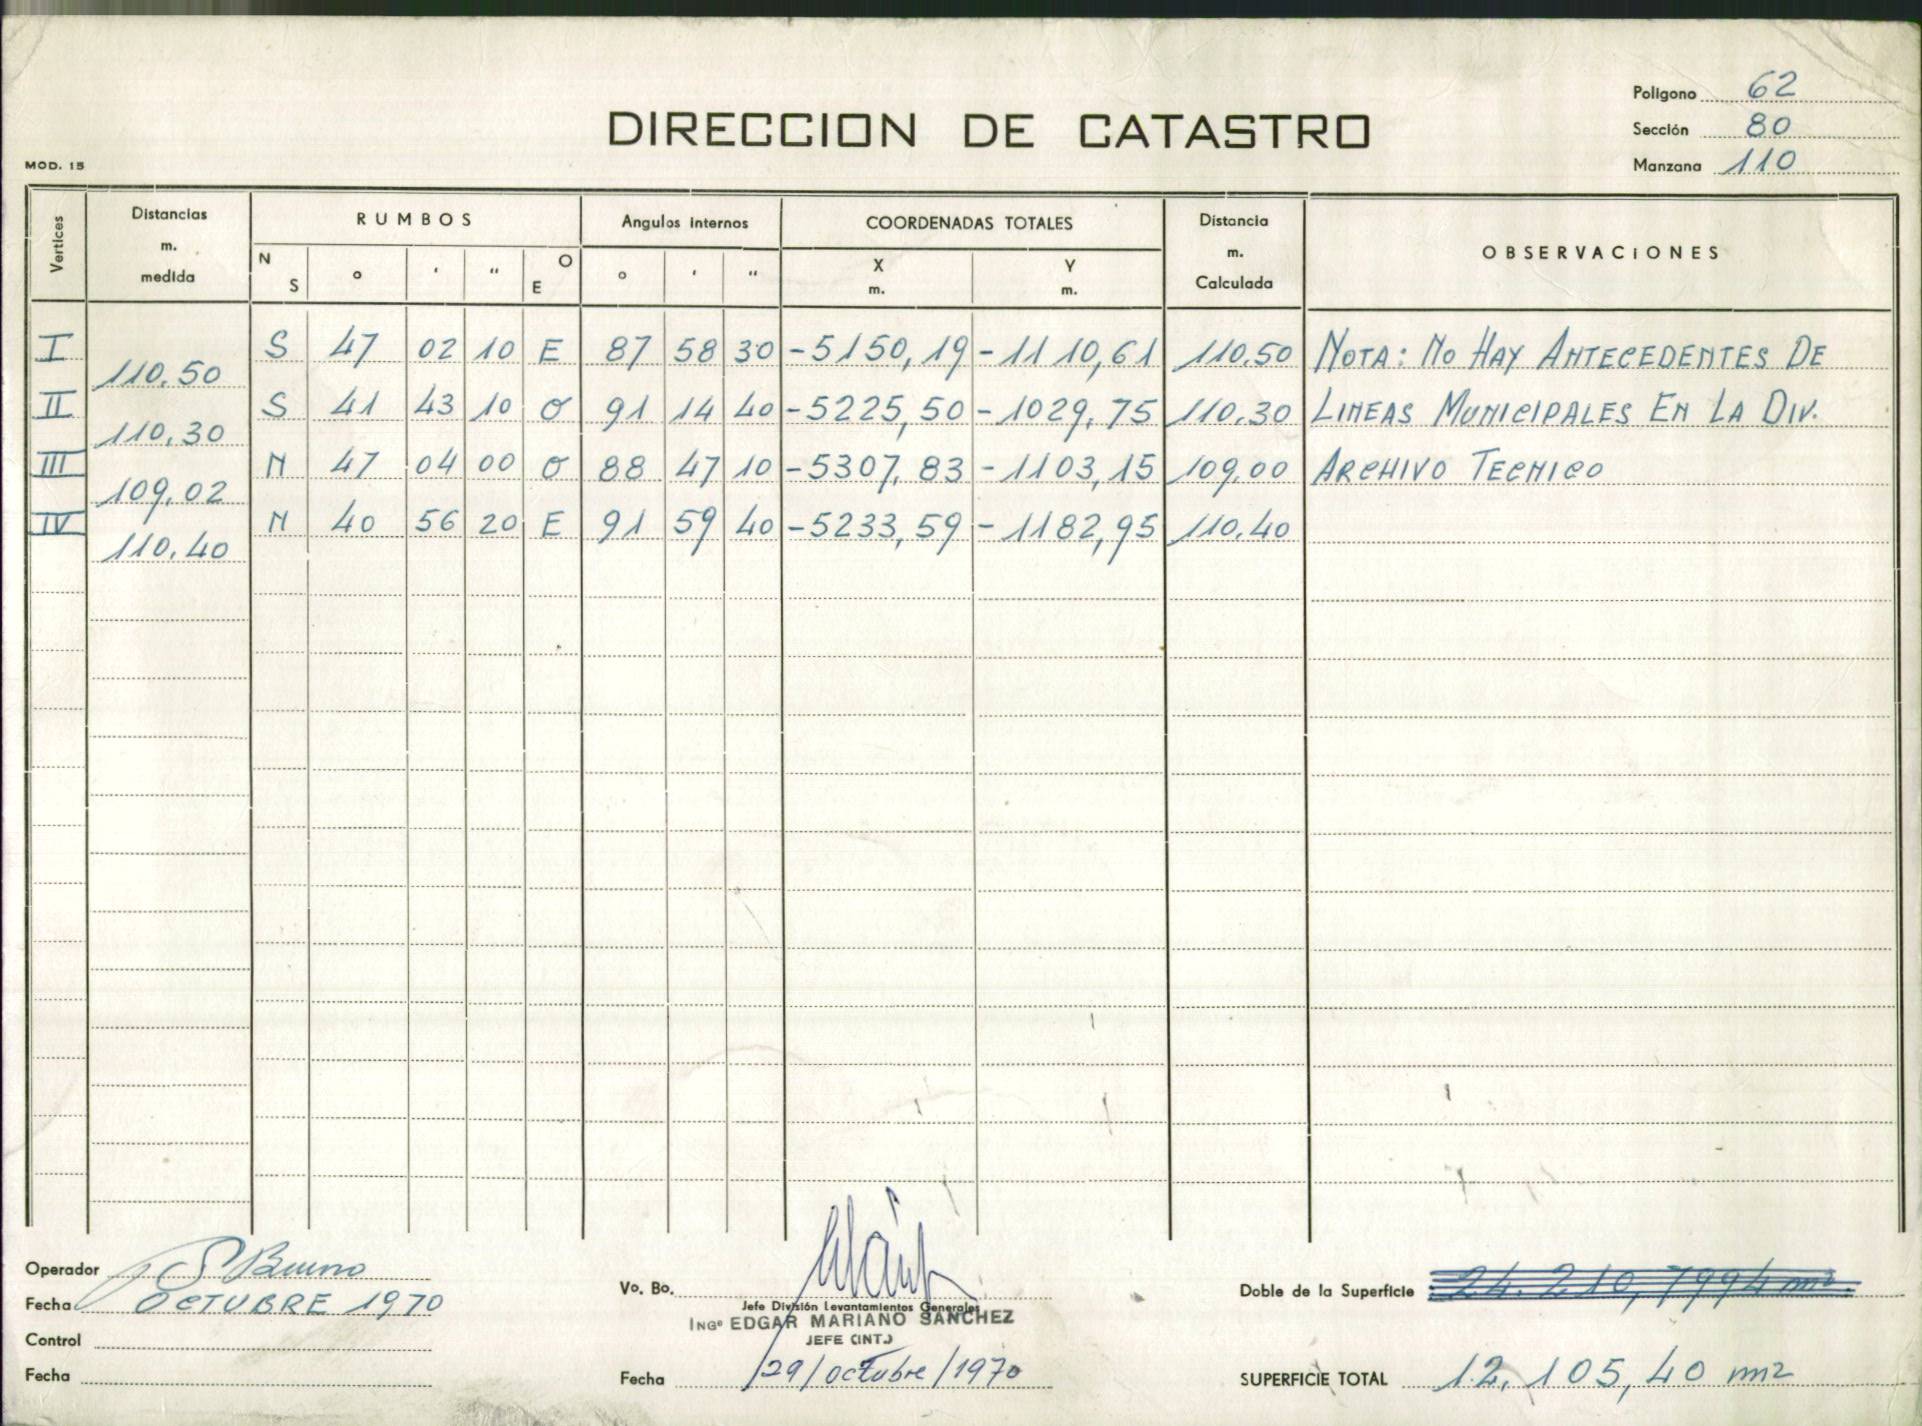 Poligono 62
DIRECCION DE CATASTRO
Sección 80
MOD. 15
Manzana 110
Vertices
Distancias m. medida
RUMBOS
Angulos internos
COORDENADAS TOTALES
Distancia m. Calculada
OBSERVACIONES
N S ° ' " O E ° ' " X m. Y m.
I S 47 02 10 E 87 58 30 -5150,19 -1110,61 110.50 NOTA: NO HAY ANTECEDENTES DE
110.50
II S 41 43 10 O 91 14 40 -5225,50 -1029,75 110.30 LINEAS MUNICIPALES EN LA DIV.
110.30
III N 47 04 00 O 88 47 10 -5307,83 -1103,15 109,00 ARCHIVO TECNICO
109.02
IV N 40 56 20 E 91 59 40 -5233,59 -1182,95 110.40
110.40
Operador
Fecha OCTUBRE 1970
Control
Fecha
Vo. Bo.
Jefe División Levantamientos Generales
INGº EDGAR MARIANO SANCHEZ
JEFE (INT.)
Fecha 29/octubre/1970
Doble de la Superficie 24.210,7994 m2
SUPERFICIE TOTAL 12.105,40 m2